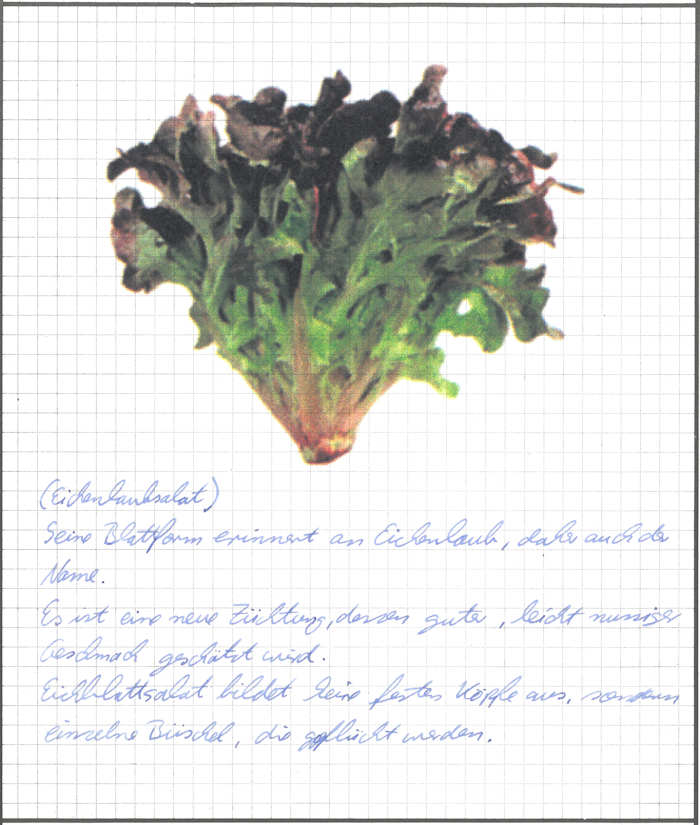 (Eichenlaubsalat)
Seine Blattform erinnert an Eichenlaub, daher auch der
Name.
Es ist eine neue Züchtung, dessen guter, leicht nussiger
Geschmack geschätzt wird.
Eichblattsalat bildet keine festen Köpfe aus, sondern
einzelne Büschel, die gepflückt werden.